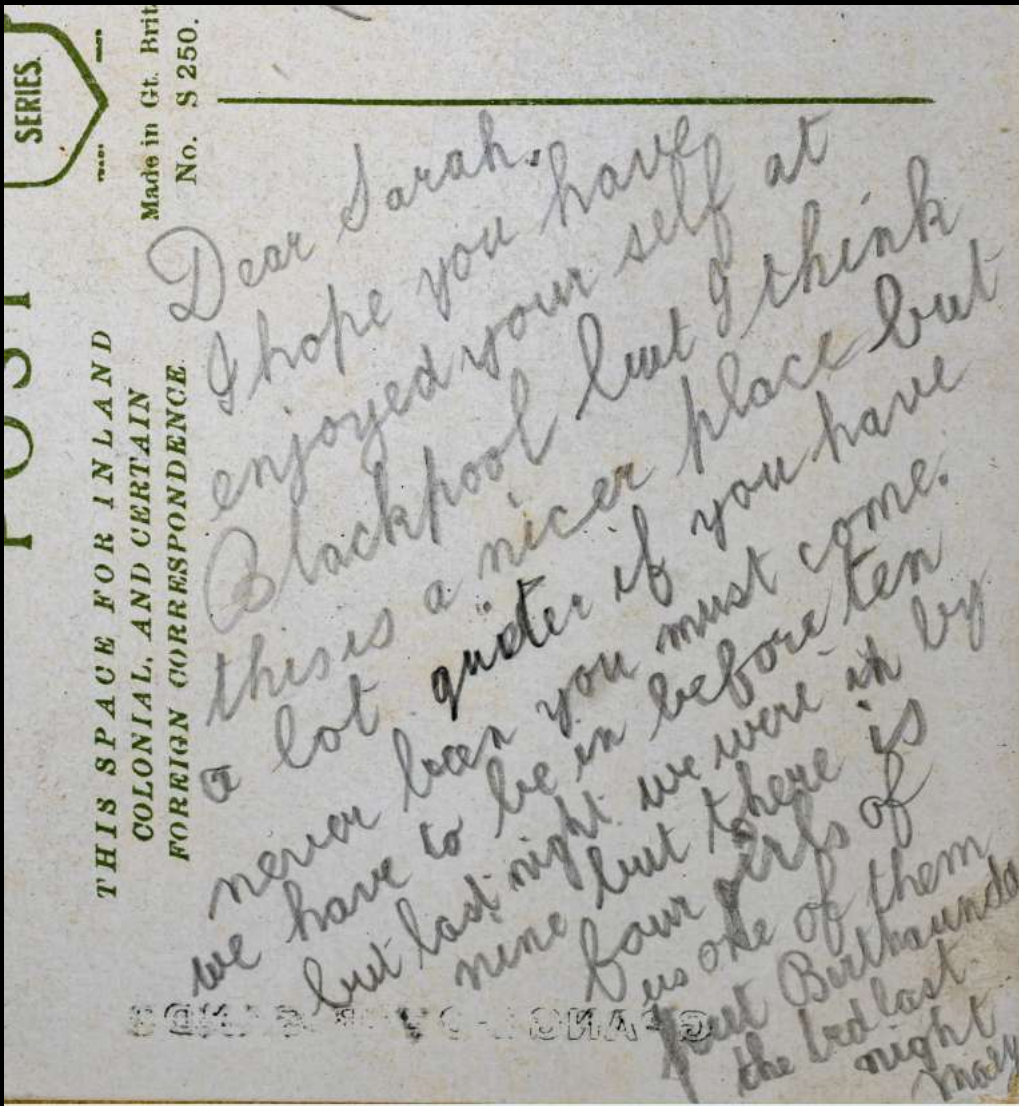 SERIES.
POST
Made in Gt. Brit
No. S 250.
THIS SPACE FOR INLAND
COLONIAL, AND CERTAIN
FOREIGN CORRESPONDENCE
Dear Sarah.
I hope you have
enjoyed your self at
Blackpool but I think
this is a nicer place but
a lot quieter if you have
never been you must come.
we have to be in before ten
but last night we were in by
nine but there is
four girls of
us one of them
put Bertha unde
the bed last
night
Mary